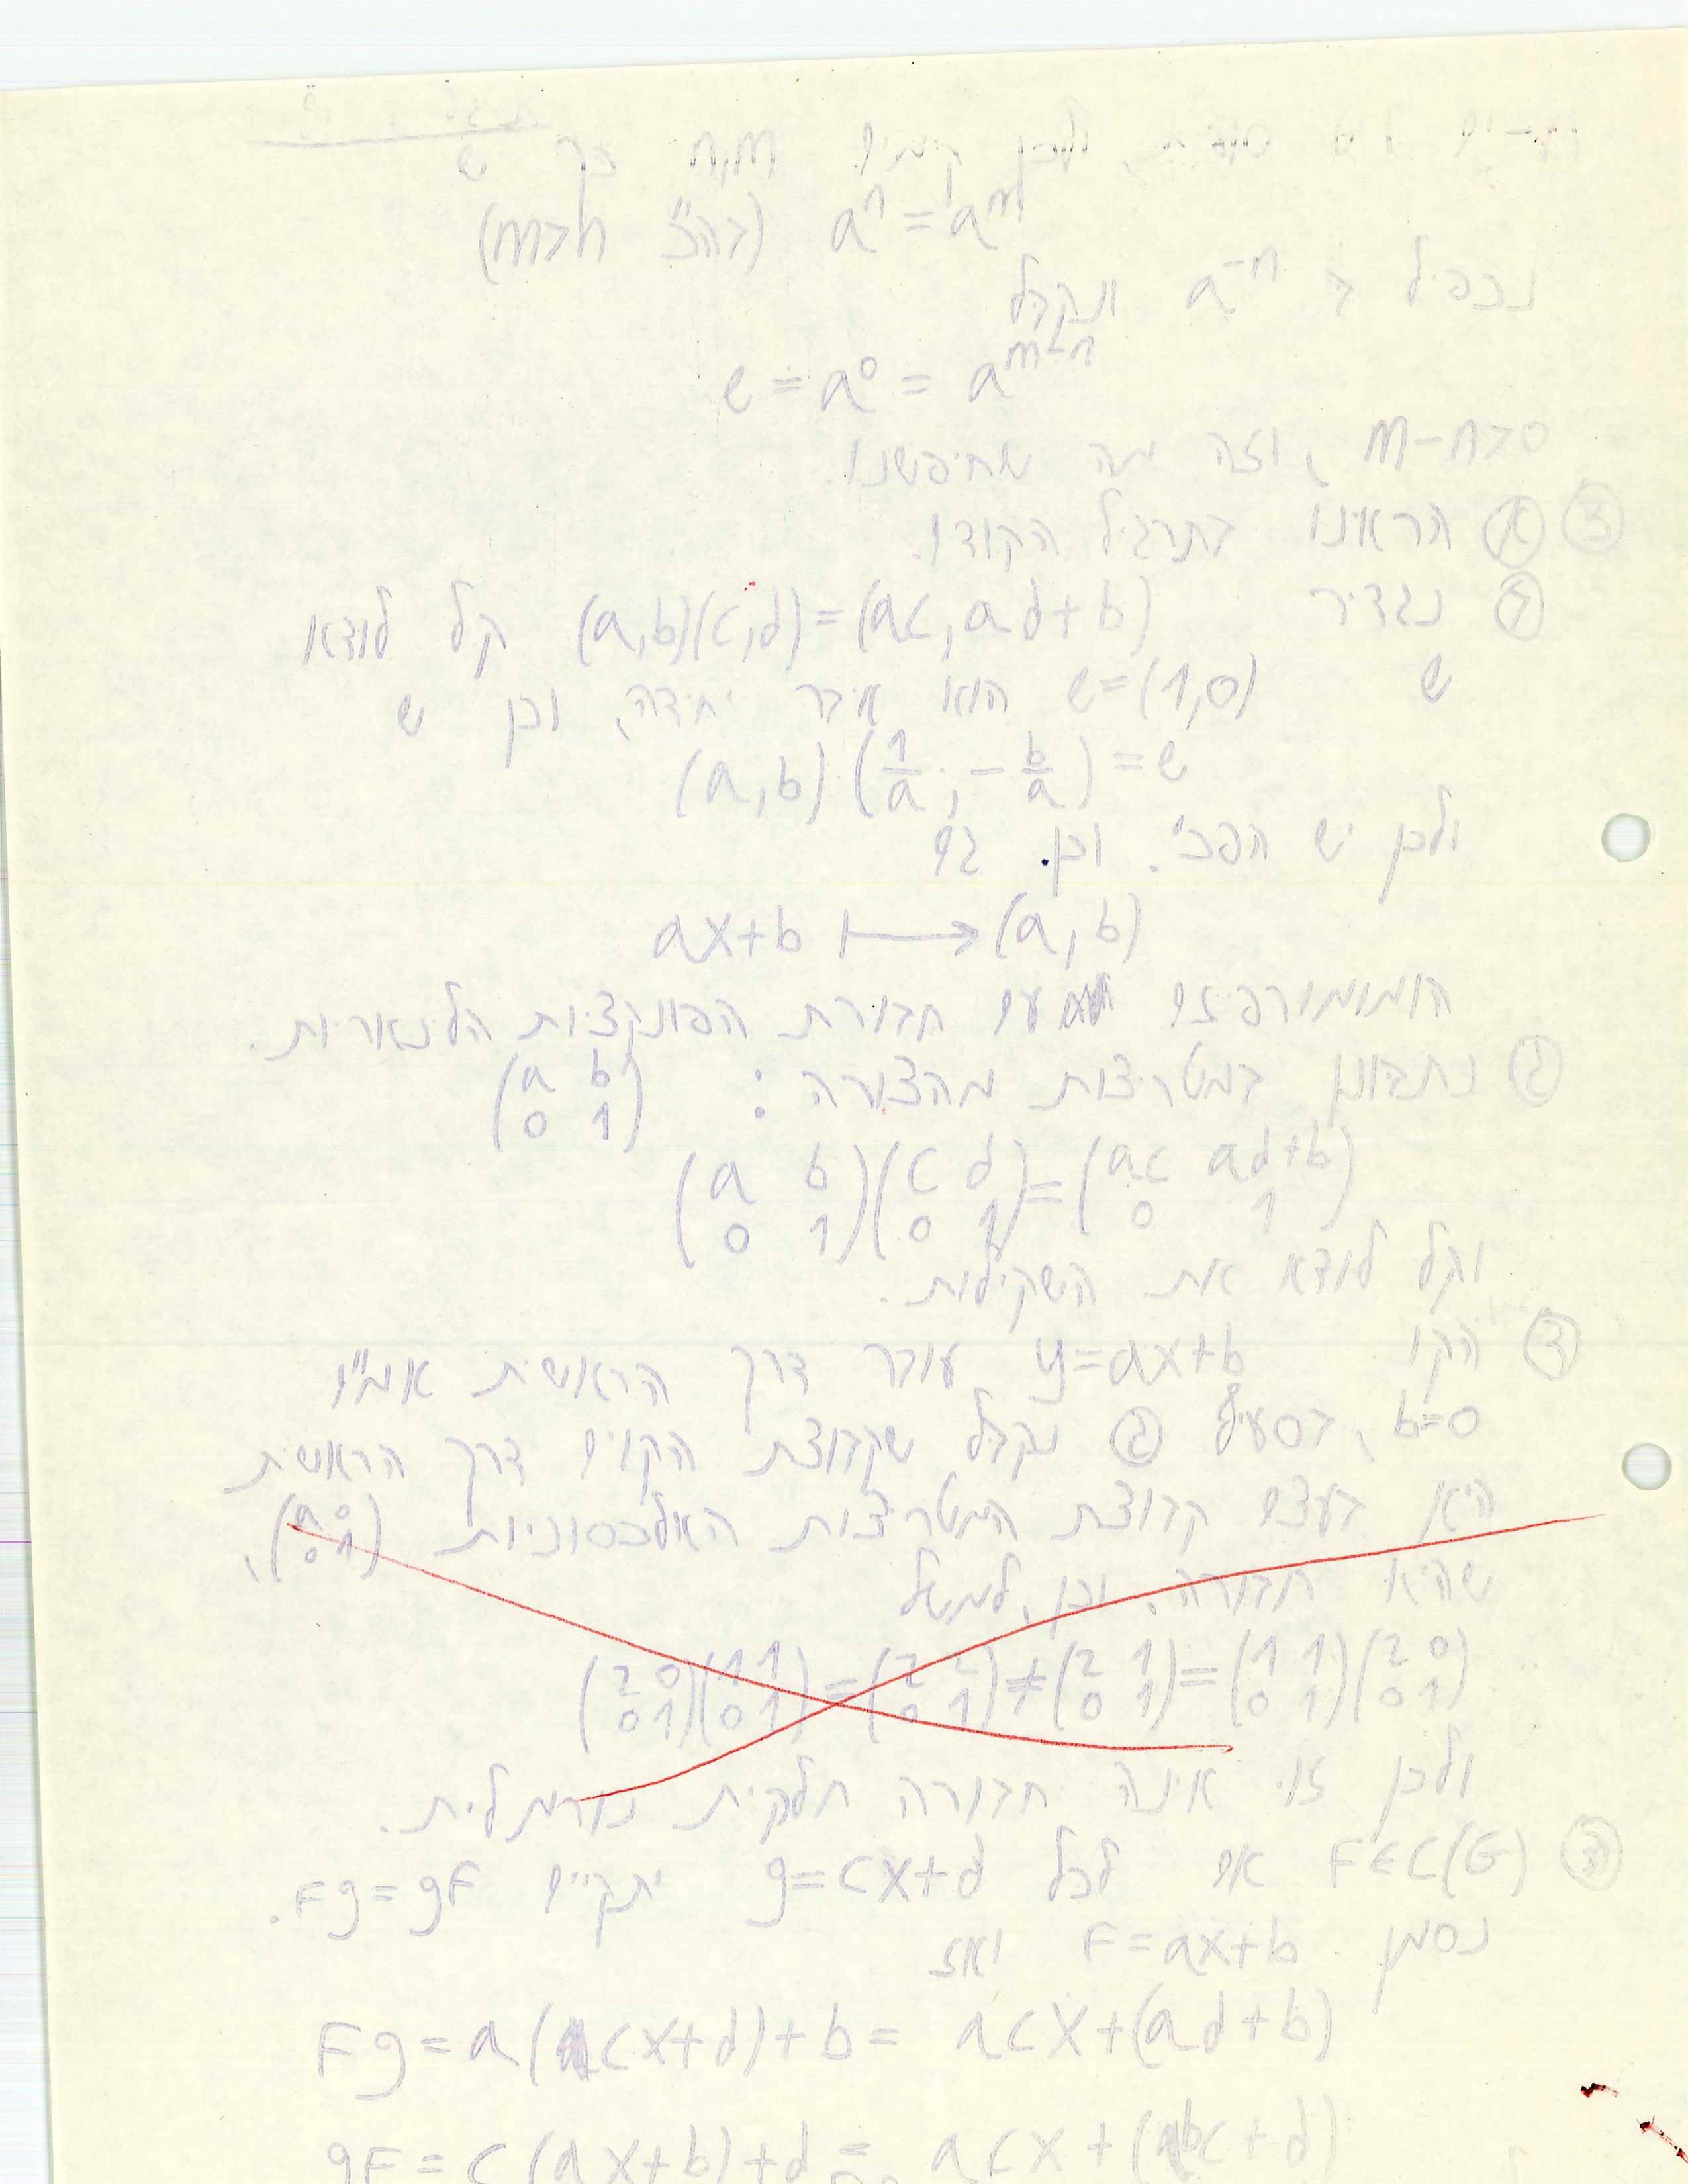 סופית, ולכן קיימים n,m כך ש
a^n = a^m (בה"כ m>n)
נכפיל ב a^{-n} ונקבל
e = a^0 = a^{m-n}
m-n>0, וזה מה שחיפשנו.
③ Ⓐ הראינו בתרגיל הקודם.
ⓑ נגדיר (a,b)(c,d)=(ac, ad+b) קל לודא
ש e=(1,0) הוא איבר יחידה, וכן ש
(a,b)(1/a, -b/a) = e
ולכן יש הפכי. וכן גם
ax+b ⟼ (a,b)
הומומורפיזם עם חבורת הפונקציות הלינאריות.
ⓖ נתבונן במטריצות מהצורה: (a b / 0 1)
(a b / 0 1)(c d / 0 1) = (ac ad+b / 0 1)
וקל לודא את השקילות.
ⓓ הקו y=ax+b עובר דרך הראשית אמ"מ
b=0, בסעיף ⓖ נקבל שקבוצת הקוים דרך הראשית
היא בעצם קבוצת המטריצות האלכסוניות (a 0 / 0 1),
שהיא חבורה. וכן, למשל
(2 0 / 0 1)(1 1 / 0 1) = (2 2 / 0 1) ≠ (2 1 / 0 1) = (1 1 / 0 1)(2 0 / 0 1)
ולכן זו אינה חבורה חלקית נורמלית.
ⓗ F∈C(G) אם לכל g=cx+d יתקיים Fg=gF.
נסמן F=ax+b ואז
Fg = a(cx+d)+b = acx+(ad+b)
gF = c(ax+b)+d = acx+(bc+d)